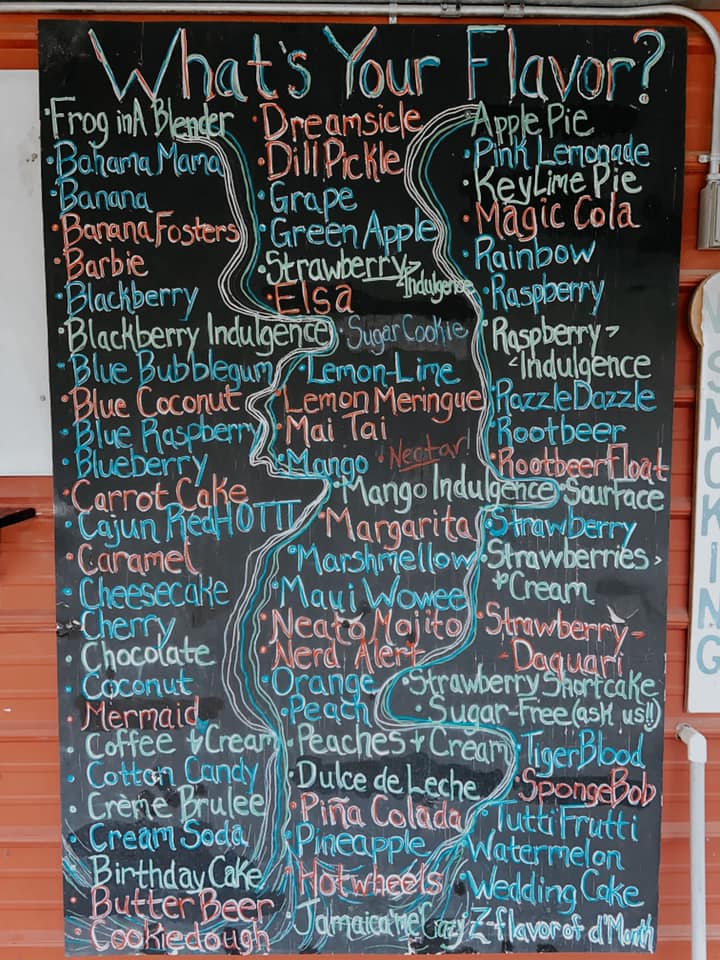 What's Your Flavor?
Frog in A Blender
Bahama Mama
Banana
Banana Fosters
Barbie
Blackberry
Blackberry Indulgence
Blue Bubblegum
Blue Coconut
Blue Raspberry
Blueberry
Carrot Cake
Cajun RedHOTTT
Caramel
Cheesecake
Cherry
Chocolate
Coconut
Mermaid
Coffee & Cream
Cotton Candy
Crème Brulee
Cream Soda
Birthday Cake
Butter Beer
Cookiedough
Dreamsicle
Dill Pickle
Grape
Green Apple
Strawberry
Indulgence
Elsa
Sugar Cookie
Lemon-Lime
Lemon Meringue
Mai Tai
Mango
Nectar
Mango Indulgence
Margarita
Marshmellow
Maui Wowee
Neato Mojito
Nerd Alert
Orange
Peach
Peaches & Cream
Dulce de Leche
Piña Colada
Pineapple
Hotwheels
Jamaica me Crazy
Apple Pie
Pink Lemonade
Key Lime Pie
Magic Cola
Rainbow
Raspberry
Raspberry
Indulgence
RazzleDazzle
Rootbeer
Rootbeer Float
Sourface
Strawberry
Strawberries
& Cream
Strawberry-
-Daquari
Strawberry Shortcake
Sugar-Free (ask us!!)
TigerBlood
SpongeBob
Tutti Frutti
Watermelon
Wedding Cake
Z-flavor of d'Month
SMOKING